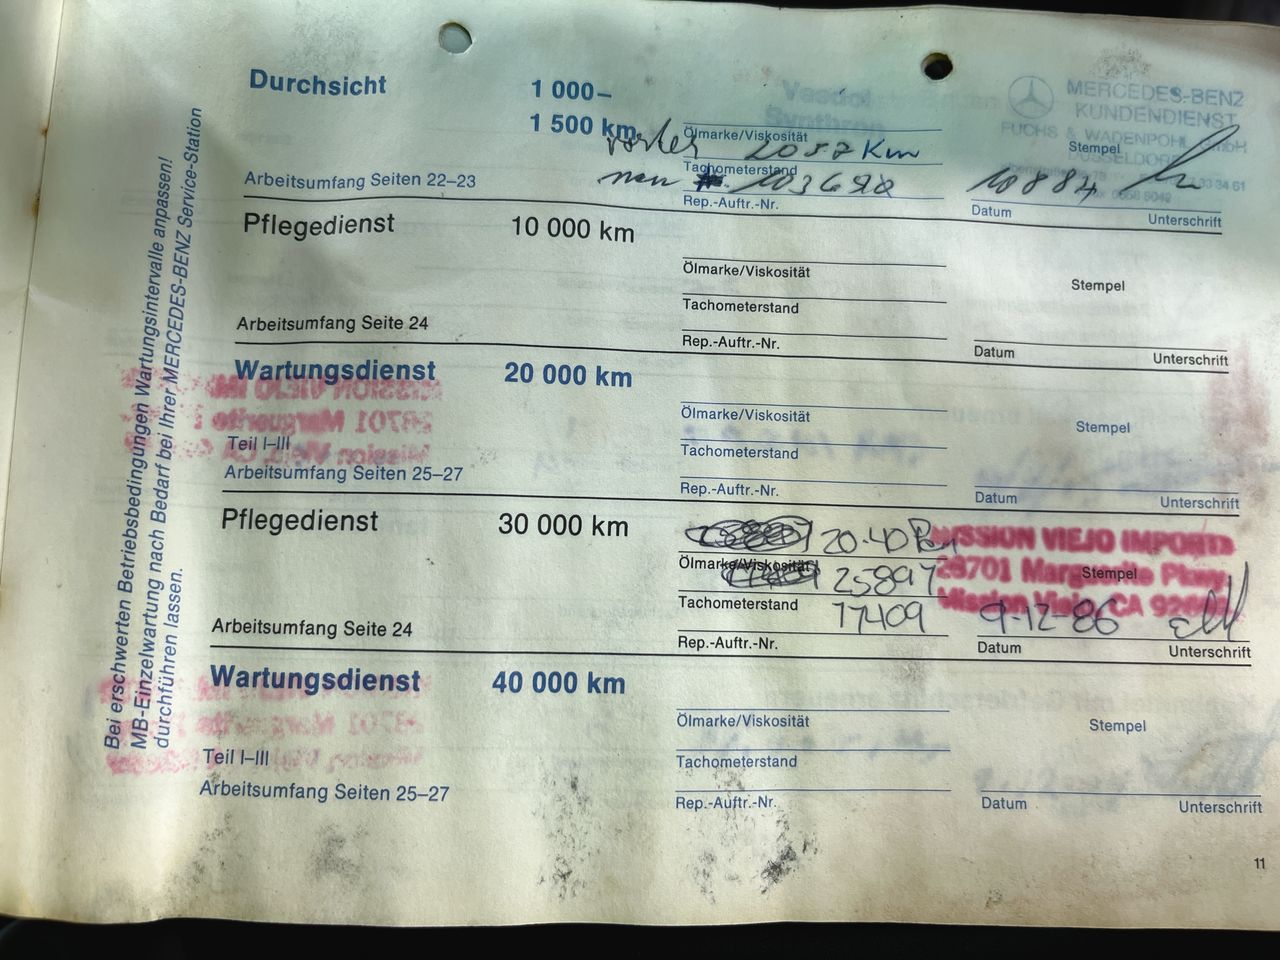 Durchsicht
1 000–
1 500 km
MERCEDES-BENZ
KUNDENDIENST
FUCHS & WADENPOHL GmbH
DÜSSELDORF
Ölmarke/Viskosität
Stempel
2052 Km
Tachometerstand
Arbeitsumfang Seiten 22–23
10 8 84
Rep.-Auftr.-Nr.
Datum
Unterschrift
Pflegedienst
10 000 km
Ölmarke/Viskosität
Stempel
Tachometerstand
Arbeitsumfang Seite 24
Rep.-Auftr.-Nr.
Datum
Unterschrift
Wartungsdienst
20 000 km
Ölmarke/Viskosität
Stempel
Teil I–III
Tachometerstand
Arbeitsumfang Seiten 25–27
Rep.-Auftr.-Nr.
Datum
Unterschrift
Pflegedienst
30 000 km
20·40
MISSION VIEJO IMPORTS
Ölmarke/Viskosität
25897
28701 Marguerite Pkwy.
Stempel
Mission Viejo, CA
Tachometerstand
17409
9-12-86
Arbeitsumfang Seite 24
Rep.-Auftr.-Nr.
Datum
Unterschrift
Wartungsdienst
40 000 km
Ölmarke/Viskosität
Stempel
Teil I–III
Tachometerstand
Arbeitsumfang Seiten 25–27
Rep.-Auftr.-Nr.
Datum
Unterschrift
Bei erschwerten Betriebsbedingungen Wartungsintervalle anpassen!
MB-Einzelwartung nach Bedarf bei Ihrer MERCEDES-BENZ Service-Station
durchführen lassen.
11